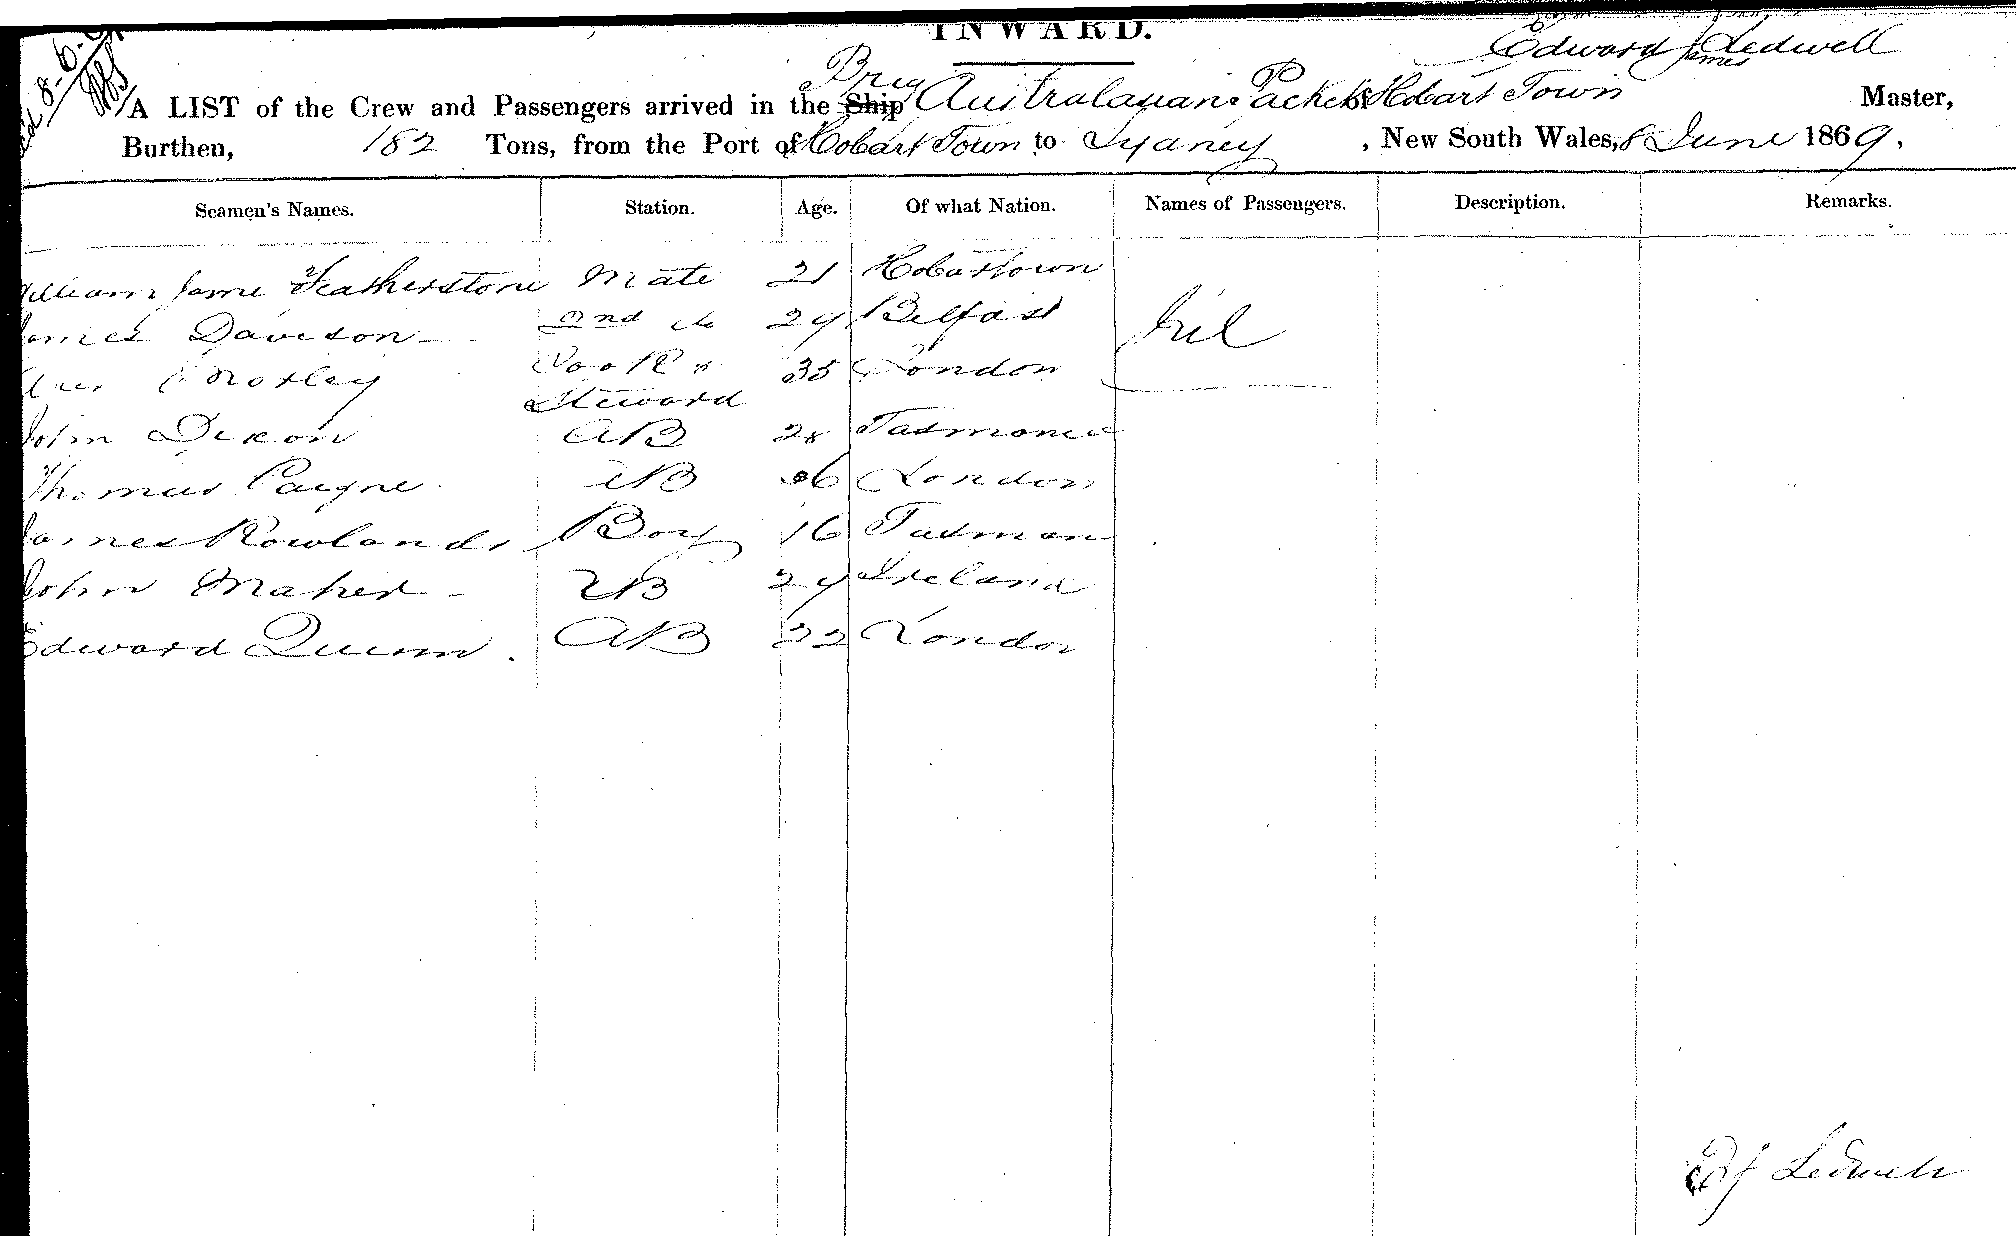 INWARD.
Edward James Ledwell
Brig
A LIST of the Crew and Passengers arrived in the Ship Australasian Packet of Hobart Town Master,
Burthen, 182 Tons, from the Port of Hobart Town to Sydney, New South Wales, 8 June 1869.
Seamen's Names. Station. Age. Of what Nation. Names of Passengers. Description. Remarks.
William Jame Featherstone Mate 21 Hobartown
James Davidson 2nd do 29 Belfast Nil
Morley Cook & 35 London
Steward
John Dixon AB 28 Tasmania
Thomas AB London
James Rowlands Boy 16 Tasman
John Maher AB 29 Ireland
Edward Quinn. AB 22 London
EJ Ledwell